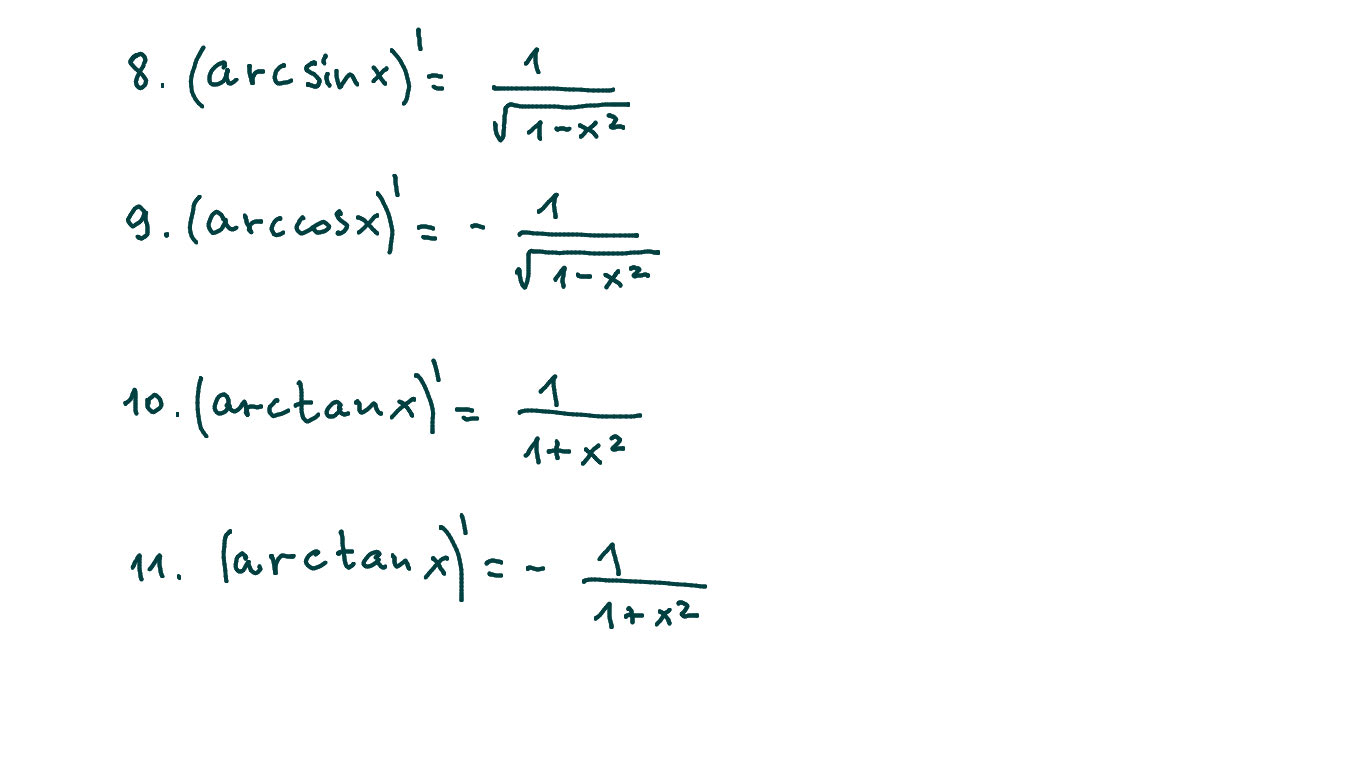 8. (arcsin x)' = 1/√(1-x²)
9. (arccos x)' = - 1/√(1-x²)
10. (arctan x)' = 1/(1+x²)
11. (arctan x)' = - 1/(1+x²)